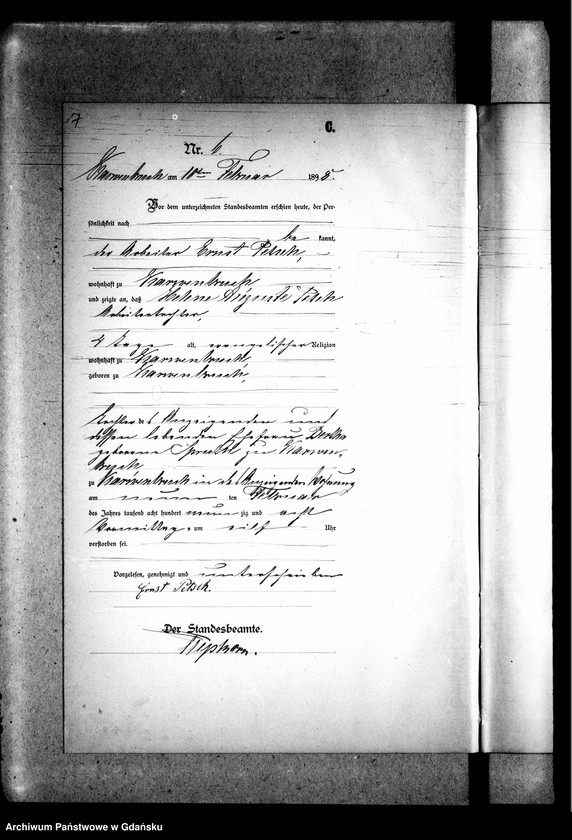 17
C.
Nr. 6.
Karwenbruch am 10ten Februar 1898.
Vor dem unterzeichneten Standesbeamten erschien heute, der Per-
sönlichkeit nach
be kannt,
der Arbeiter Ernst Petsch,
wohnhaft zu Karwenbruch
und zeigte an, daß Helene Auguste Petsch
Arbeitertochter,
4 Tage alt, evangelischer Religion
wohnhaft zu Karwenbruch,
geboren zu Karwenbruch,
Tochter des Anzeigenden und
dessen lebenden Ehefrau Bertha
geborene zu Karwen-
bruch
zu Karwenbruch in des Anzeigenden Wohnung
am neunten Februar
des Jahres tausend acht hundert neun zig und acht
Vormittags um eilf Uhr
verstorben sei.
Vorgelesen, genehmigt und unterschrieben
Ernst Petsch.
Der Standesbeamte.
Archiwum Państwowe w Gdańsku